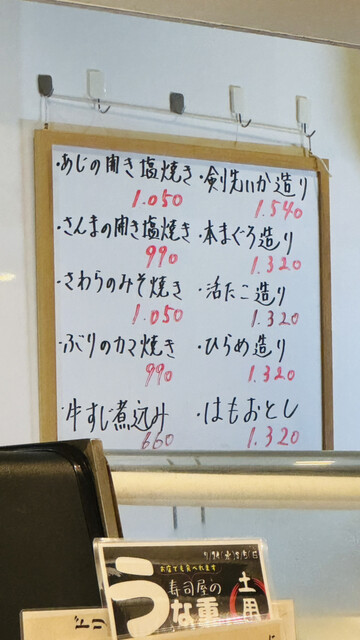 ・あじの開き塩焼き
1.050
・さんまの開き塩焼き
990
・さわらのみそ焼き
1.050
・ぶりのカマ焼き
990
・牛すじ煮込み
660
・剣先いか造り
1.540
・本まぐろ造り
1.320
・活たこ造り
1.320
・ひらめ造り
1.320
・はもおとし
1.320
お店でも食べれます
寿司屋の
うな重
土用